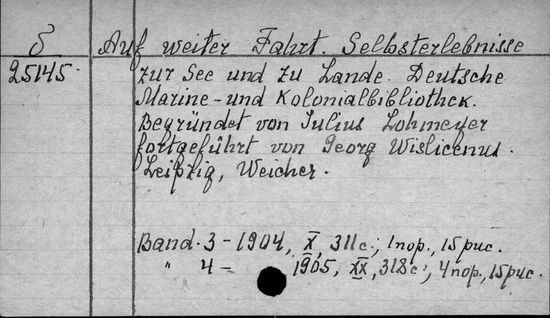 δ Auf weiter Fahrt. Selbsterlebnisse
25145. zur See und zu Lande. Deutsche
Marine- und Kolonialbibliothek.
Begründet von Julius Lohmeyer
fortgeführt von Georg Wislicenus.
Leipzig, Weicher.
Band 3 - 1904, X, 311c.; 1пор., 15рис.
" 4 - 1905, XX, 318c., 4пор., 15рис.